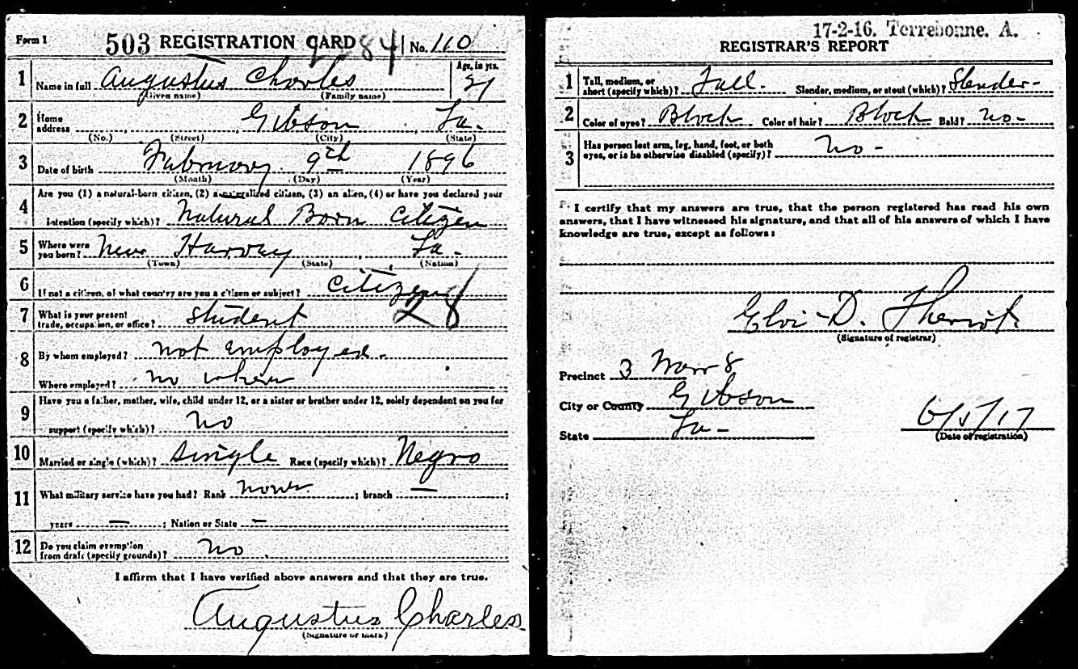 Form 1 503 REGISTRATION CARD 984 No. 110
1 Name in full Augustus Charles Age, in yrs. 21
(Given name) (Family name)
2 Home address Gibson La.
(No.) (Street) (City) (State)
3 Date of birth February 9th 1896
(Month) (Day) (Year)
4 Are you (1) a natural-born citizen, (2) a naturalized citizen, (3) an alien, (4) or have you declared your
intention (specify which)? Natural Born Citizen
5 Where were you born? New Harvay La-
(Town) (State) (Nation)
6 If not a citizen, of what country are you a citizen or subject? Citizen
28
7 What is your present trade, occupation, or office? Student
8 By whom employed? not employed-
Where employed? no where
9 Have you a father, mother, wife, child under 12, or a sister or brother under 12, solely dependent on you for
support (specify which)? No
10 Married or single (which)? Single Race (specify which)? Negro
11 What military service have you had? Rank none ; branch — ;
years — ; Nation or State —
12 Do you claim exemption from draft (specify grounds)? No
I affirm that I have verified above answers and that they are true.
Augustus Charles
(Signature or mark)
17-2-16. Terrebonne. A.
REGISTRAR'S REPORT
1 Tall, medium, or short (specify which)? Tall. Slender, medium, or stout (which)? Slender-
2 Color of eyes? Black Color of hair? Black Bald? no-
3 Has person lost arm, leg, hand, foot, or both
eyes, or is he otherwise disabled (specify)? No-
I certify that my answers are true, that the person registered has read his own
answers, that I have witnessed his signature, and that all of his answers of which I have
knowledge are true, except as follows:
D. Theriot
(Signature of registrar)
Precinct 3 Ward 8
City or County Gibson
State La-
6/5/17
(Date of registration)